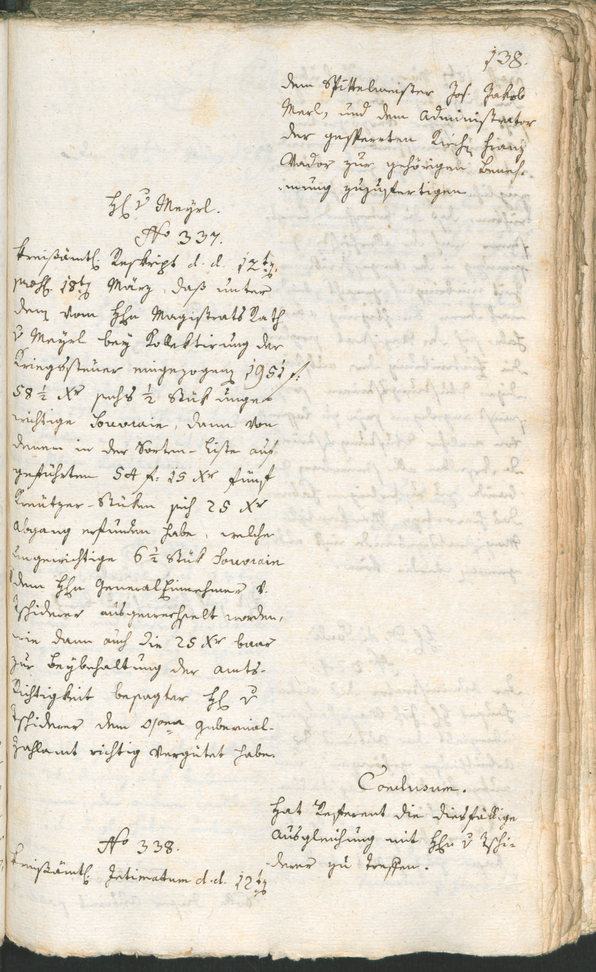 138.
dem Spittelmeister Jos. Jakob
Merl, und dem Administrator
der gesperrten Kirche Franz
Vador zur gehörigen Beneh-
mung zuzufertigen
H. v Meyrl.
No 337.
Kreißämtl. Reskript d. d. 12ten
18ten März, daß unter
dem vom Hhn Magistrats Rath
v Meyrl bey Kollektirung der
Kriegssteuer eingezogenen 1951 f.
58 ½ Xr sechs ½ Stük unge-
wichtige Souvrain, dann von
denen in der Sorten-Liste auf
geführten 54 f. 15 Xr fünf
Kreutzer-Stüken sich 25 Xr
Abgang erfunden habe, welche
ungewichtige 6 ½ Stük Souvrain
dem Hhn General Einnehmer v.
Tschiderer ausgewechselt worden,
wie dann auch die 25 Xr baar
zur Beybehaltung der Amts-
Richtigkeit besagter H. v
Tschiderer dem Gubernial-
Zahlamt richtig vergütet habe.
Conclusum.
Hat Referent die diesfällige
Ausgleichung mit Hhn v Tschi-
derer zu treffen.
No 338.
Kreißämtl. Intimatum d. d. 12ten